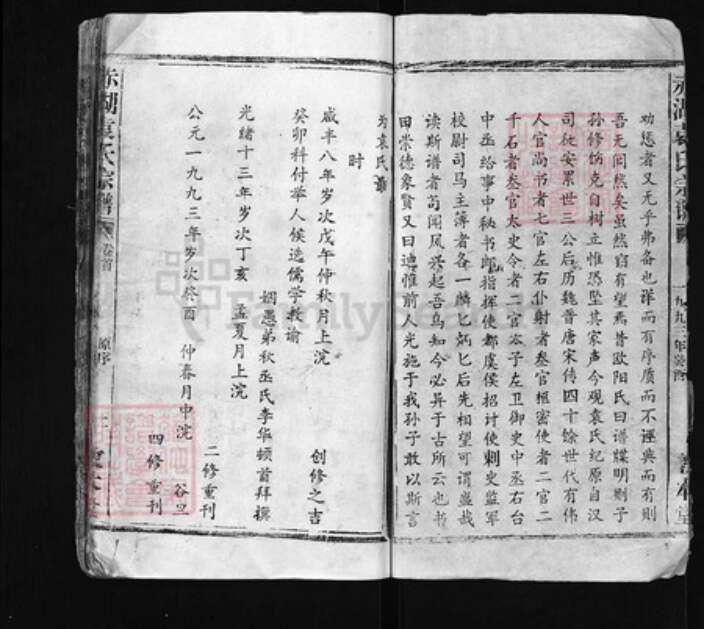 赤湖袁氏宗谱
一九九三年癸酉
善本堂
劝惩者又无乎弗备也详而有序质而不诬典而有则
吾无间然矣虽然窃有望焉昔欧阳氏曰谱牒明则子
孙修饬克自树立惟恐坠其家声今观袁氏纪原自汉
司徒安累世三公后历魏晋唐宋传四十馀世代有伟
人官尚书者七官左右仆射者叁官枢密使者二官二
千石者叁官太史令者二官太子左卫御史中丞右台
中丞给事中秘书郎指挥使都虞侯招讨使刺史监军
校尉司马主簿者各一麟匕炳匕后先相望可谓盛哉
读斯谱者苟闻风兴起吾乌知今必异于古所云也书
曰崇德象贤又曰迪惟前人光施于我孙子敢以斯言
为袁氏
时
咸丰八年岁次戊午仲秋月上浣 创修之吉
癸卯科付举人候选儒学教谕
姻愚弟秋丞氏李华顿首拜撰
光绪十三年岁次丁亥 孟夏月上浣 二修重刊
公元一九九三年岁次癸酉 仲春月中浣 谷旦
四修重刊
赤湖袁氏宗谱
卷首
原序
FamilySearch